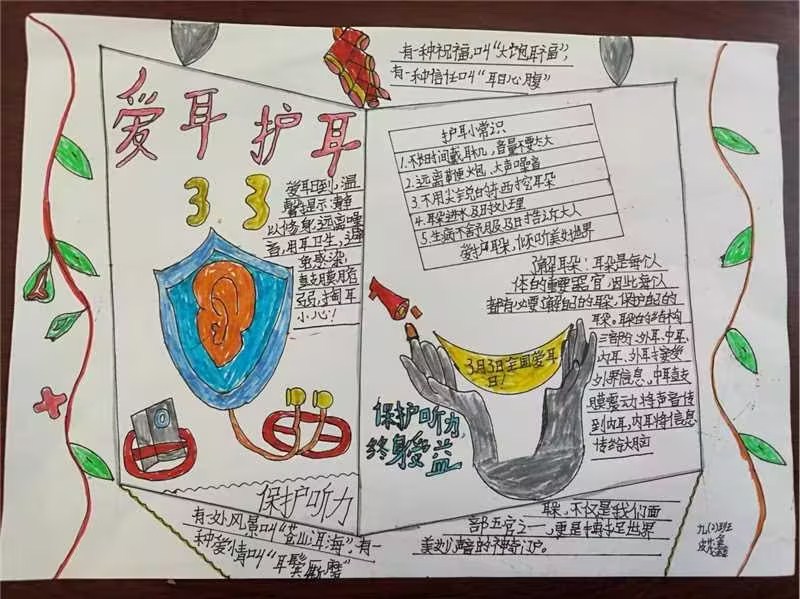 有一种祝福,叫“大饱耳福”,
有一种信任叫“耳目心腹”
爱耳护耳
3.3
爱耳日到,温
馨提示:静
以修身,远离噪
音,用耳卫生,
避免感染,
鼓膜脆
弱,掏耳
小心!
护耳小常识
1.不长时间戴耳机,音量不要太大
2.远离鞭炮,大声噪音
3.不用尖锐的东西挖耳朵
4.耳朵进水及时处理
5.生病不舒服及时告诉大人
爱护耳朵,倾听美妙世界
了解耳朵:耳朵是每个人
体的重要器官,因此每个人
都有必要了解自己的耳朵,保护自己的
耳朵。耳朵的结构
三部分:外耳、中耳、
内耳,外耳接受
外界信息,中耳鼓
膜震动将声音传
到内耳,内耳将信息
传给大脑
3月3日全国爱耳
日!
保护听力,
终身受益
保护听力
有一处风景叫“苍山洱海”,有一
种爱情叫“耳鬓厮磨”
耳朵,不仅是我们面
部五官之一,更是捕捉世界
美妙声音的神奇门户。
九(2)班